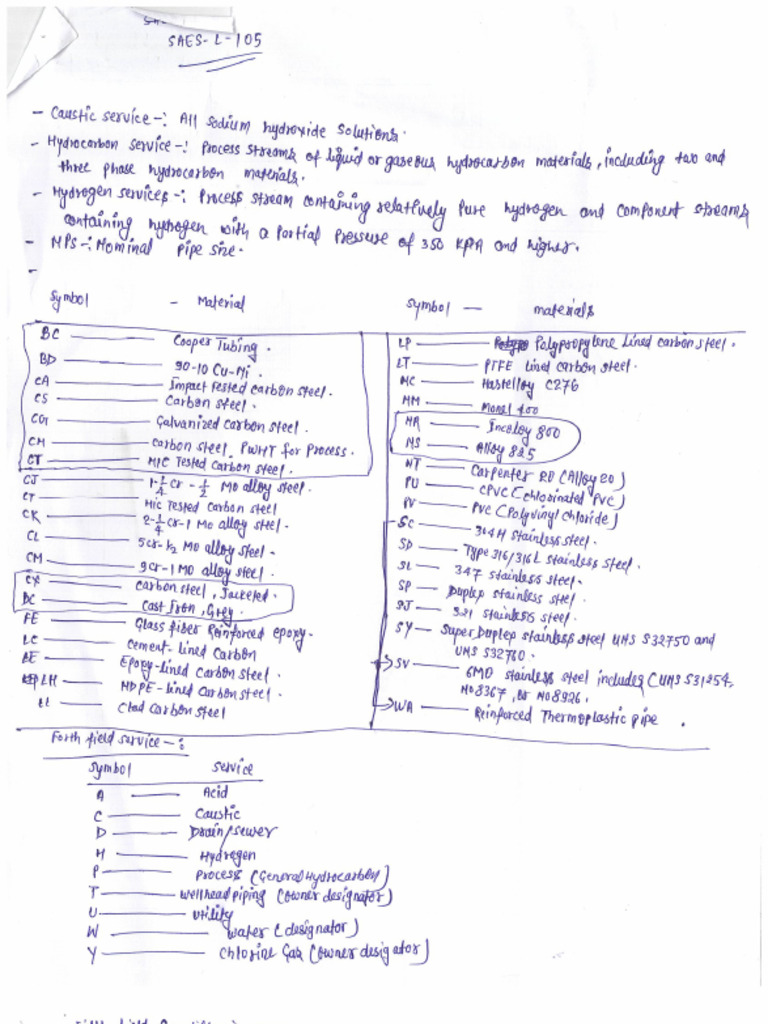 SAES-L-105
- Caustic service -: All sodium hydroxide solutions.
- Hydrocarbon service -: Process streams of liquid or gaseous hydrocarbon materials, including two and
three phase hydrocarbon materials.
- Hydrogen services -: Process stream containing relatively Pure hydrogen and component streams
containing hydrogen with a Partial Pressure of 350 KPA and higher.
- NPS -: Nominal pipe size.
-
Symbol - Material
BC Cooper Tubing.
BD 90-10 Cu-Ni.
CA Impact Tested carbon steel.
CS Carbon steel.
CG Galvanized carbon steel.
CM carbon steel, PWHT for Process.
CT HIC Tested carbon steel.
CJ 1-1/4 Cr - 1/2 Mo alloy steel.
CT HIC Tested carbon steel
CK 2-1/4 Cr-1 Mo alloy steel.
CL 5cr-1/2 Mo alloy steel.
CM 9cr-1 Mo alloy steel.
CX Carbon steel, Jacketed
DC Cast Iron, Grey.
FE Glass fiber Reinforced epoxy.
LC Cement-Lined Carbon
LE Epoxy-lined Carbon steel.
LH HDPE-lined Carbon steel.
LL Clad carbon steel
Symbol - materials
LP Polypropylene Lined carbon steel.
LT PTFE lined carbon steel.
MC Hastelloy C276
MM Monel 400
NR Incoloy 800
NS Alloy 825
NT Carpenter 20 (Alloy 20)
PU CPVC (chlorinated PVC)
PV PVC (Polyvinyl chloride)
SC 304H stainless steel.
SD Type 316/316L stainless steel.
SL 347 stainless steel.
SP Duplep stainless steel.
SJ 321 stainless steel.
SY Super Duplep stainless steel UNS S32750 and
UNS S32760.
SV 6MO stainless steel includes (UNS S31254,
N08367, or N08926.
WA Reinforced Thermoplastic pipe.
Forth field service -:
Symbol Service
A Acid
C Caustic
D Drain/sewer
H Hydrogen
P process (General Hydrocarbon)
T wellhead piping (owner designator)
U utility
W water (designator)
Y chlorine Gas (owner desigator)